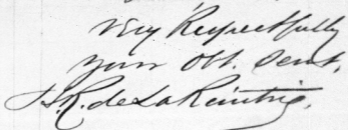 Very Respectfully
your Obt. Servt.
J. R. de La Reintrie.